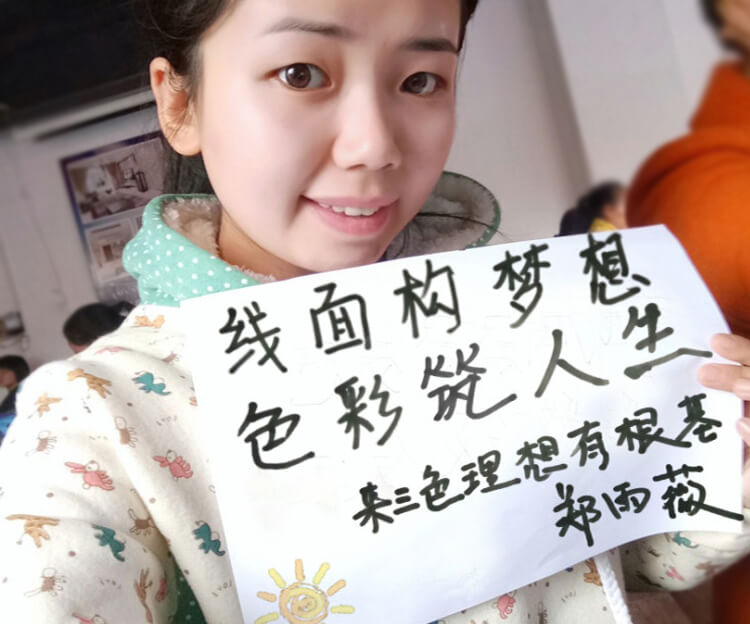 线面构梦想
色彩筑人生
来三色理想有根基
郑雨薇